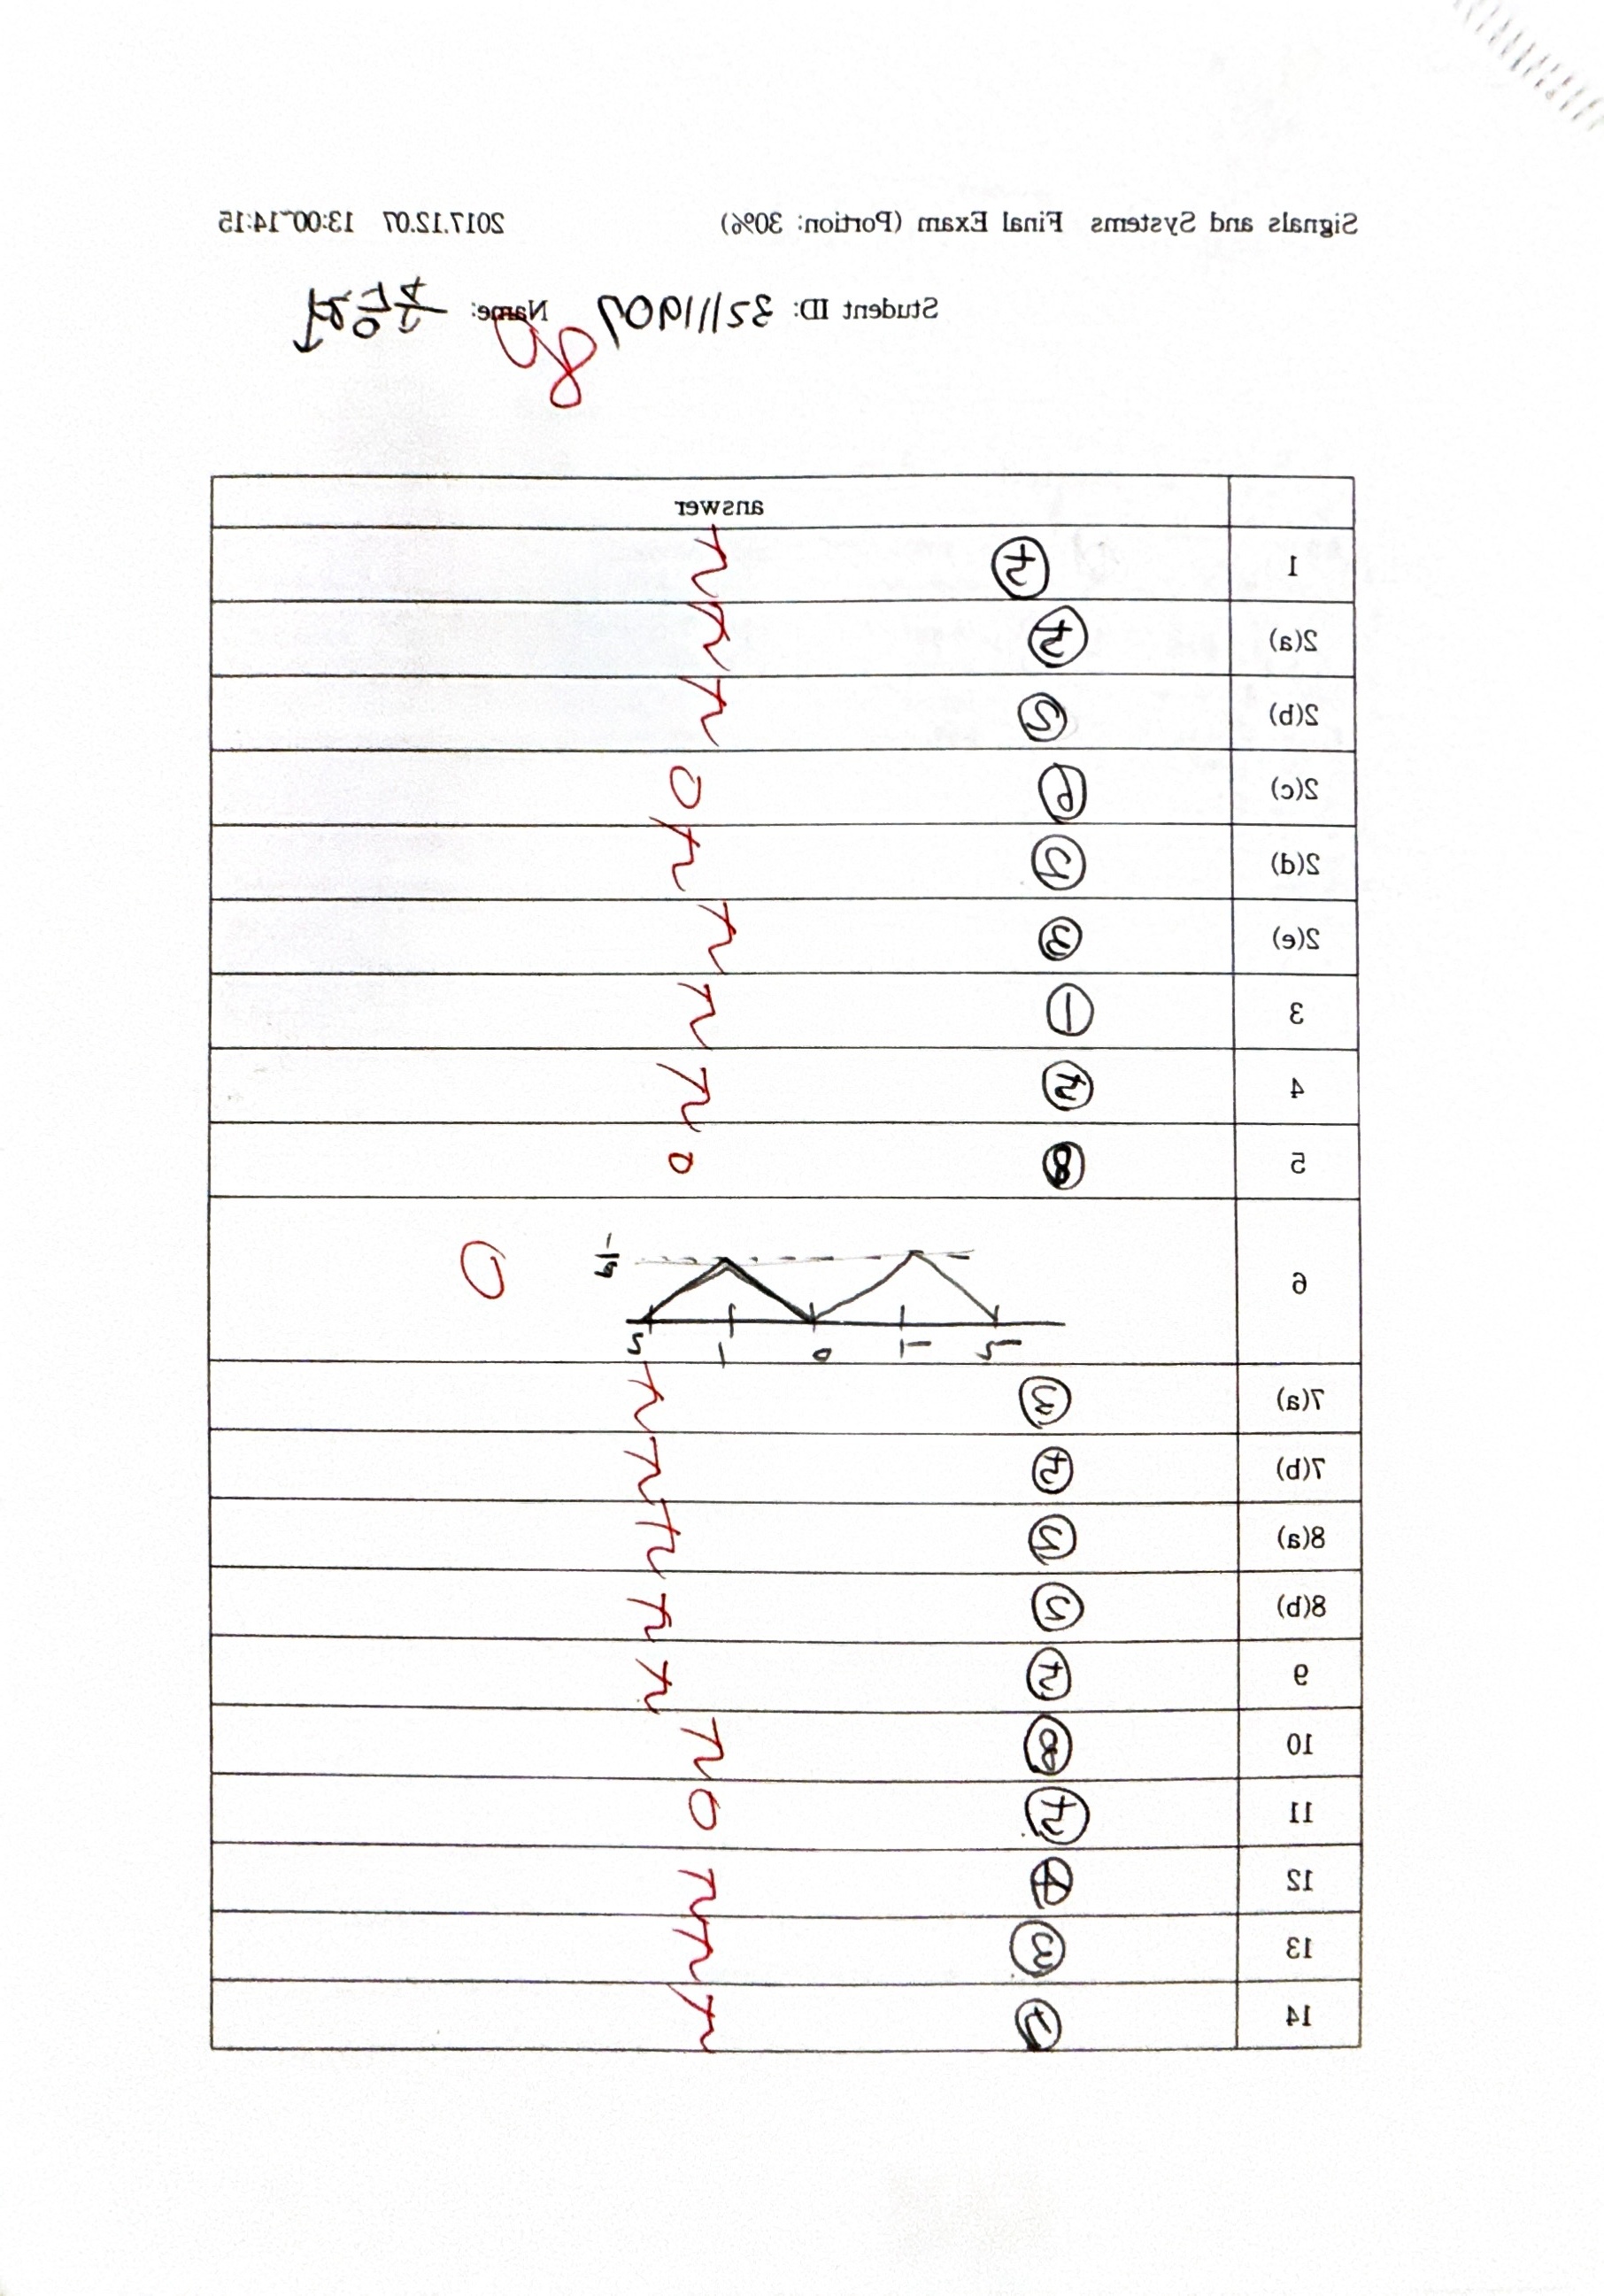 Signals and Systems Final Exam (Portion: 30%) 2017.12.07 13:00~14:15
Student ID: 32111907 Name:
80
answer
1 ⑤ 5
2(a) ⑤ 5
2(b) ② 5
2(c) ⑥ 0
2(d) ② 5
2(e) ③ 5
3 ① 5
4 ⑤ 5
5 ⑧ 0
6 0
-2 -1 0 1 2
7(a) ③ 5
7(b) ⑤ 5
8(a) ② 5
8(b) ② 5
9 ⑤ 5
10 ⑧ 5
11 ⑤ 0
12 ④ 5
13 ③ 5
14 5